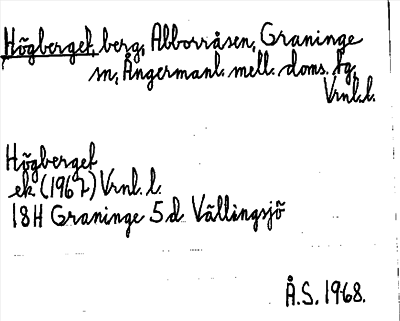 Högberget, berg, Abborråsen, Graninge
sn, Ångermanl. mell. doms. fg,
Vrnl. l.
Högberget
ek (1967) Vrnl. l.
18H Graninge 5 d Vällingsjö
Å.S. 1968.